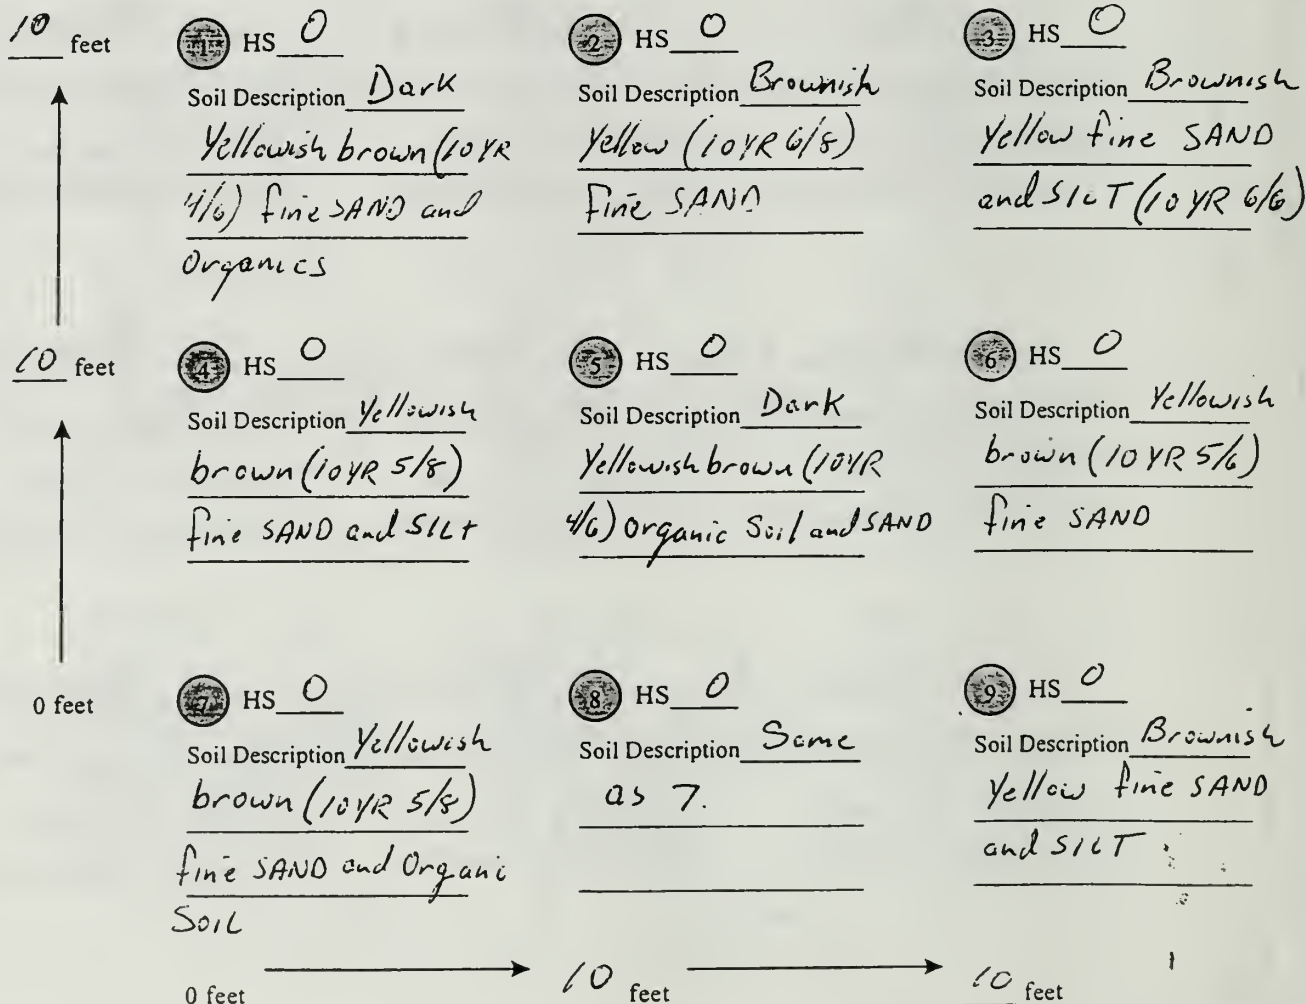 10 feet
1 HS 0
Soil Description Dark
Yellowish brown (10 YR
4/6) fine SAND and
Organics
2 HS 0
Soil Description Brownish
Yellow (10 YR 6/8)
fine SAND
3 HS 0
Soil Description Brownish
Yellow fine SAND
and SILT (10 YR 6/6)
10 feet
4 HS 0
Soil Description Yellowish
brown (10 YR 5/8)
fine SAND and SILT
5 HS 0
Soil Description Dark
Yellowish brown (10 YR
4/6) Organic Soil and SAND
6 HS 0
Soil Description Yellowish
brown (10 YR 5/6)
fine SAND
0 feet
7 HS 0
Soil Description Yellowish
brown (10 YR 5/8)
fine SAND and Organic
SOIL
8 HS 0
Soil Description Same
as 7.
9 HS 0
Soil Description Brownish
Yellow fine SAND
and SILT
0 feet
10 feet
10 feet